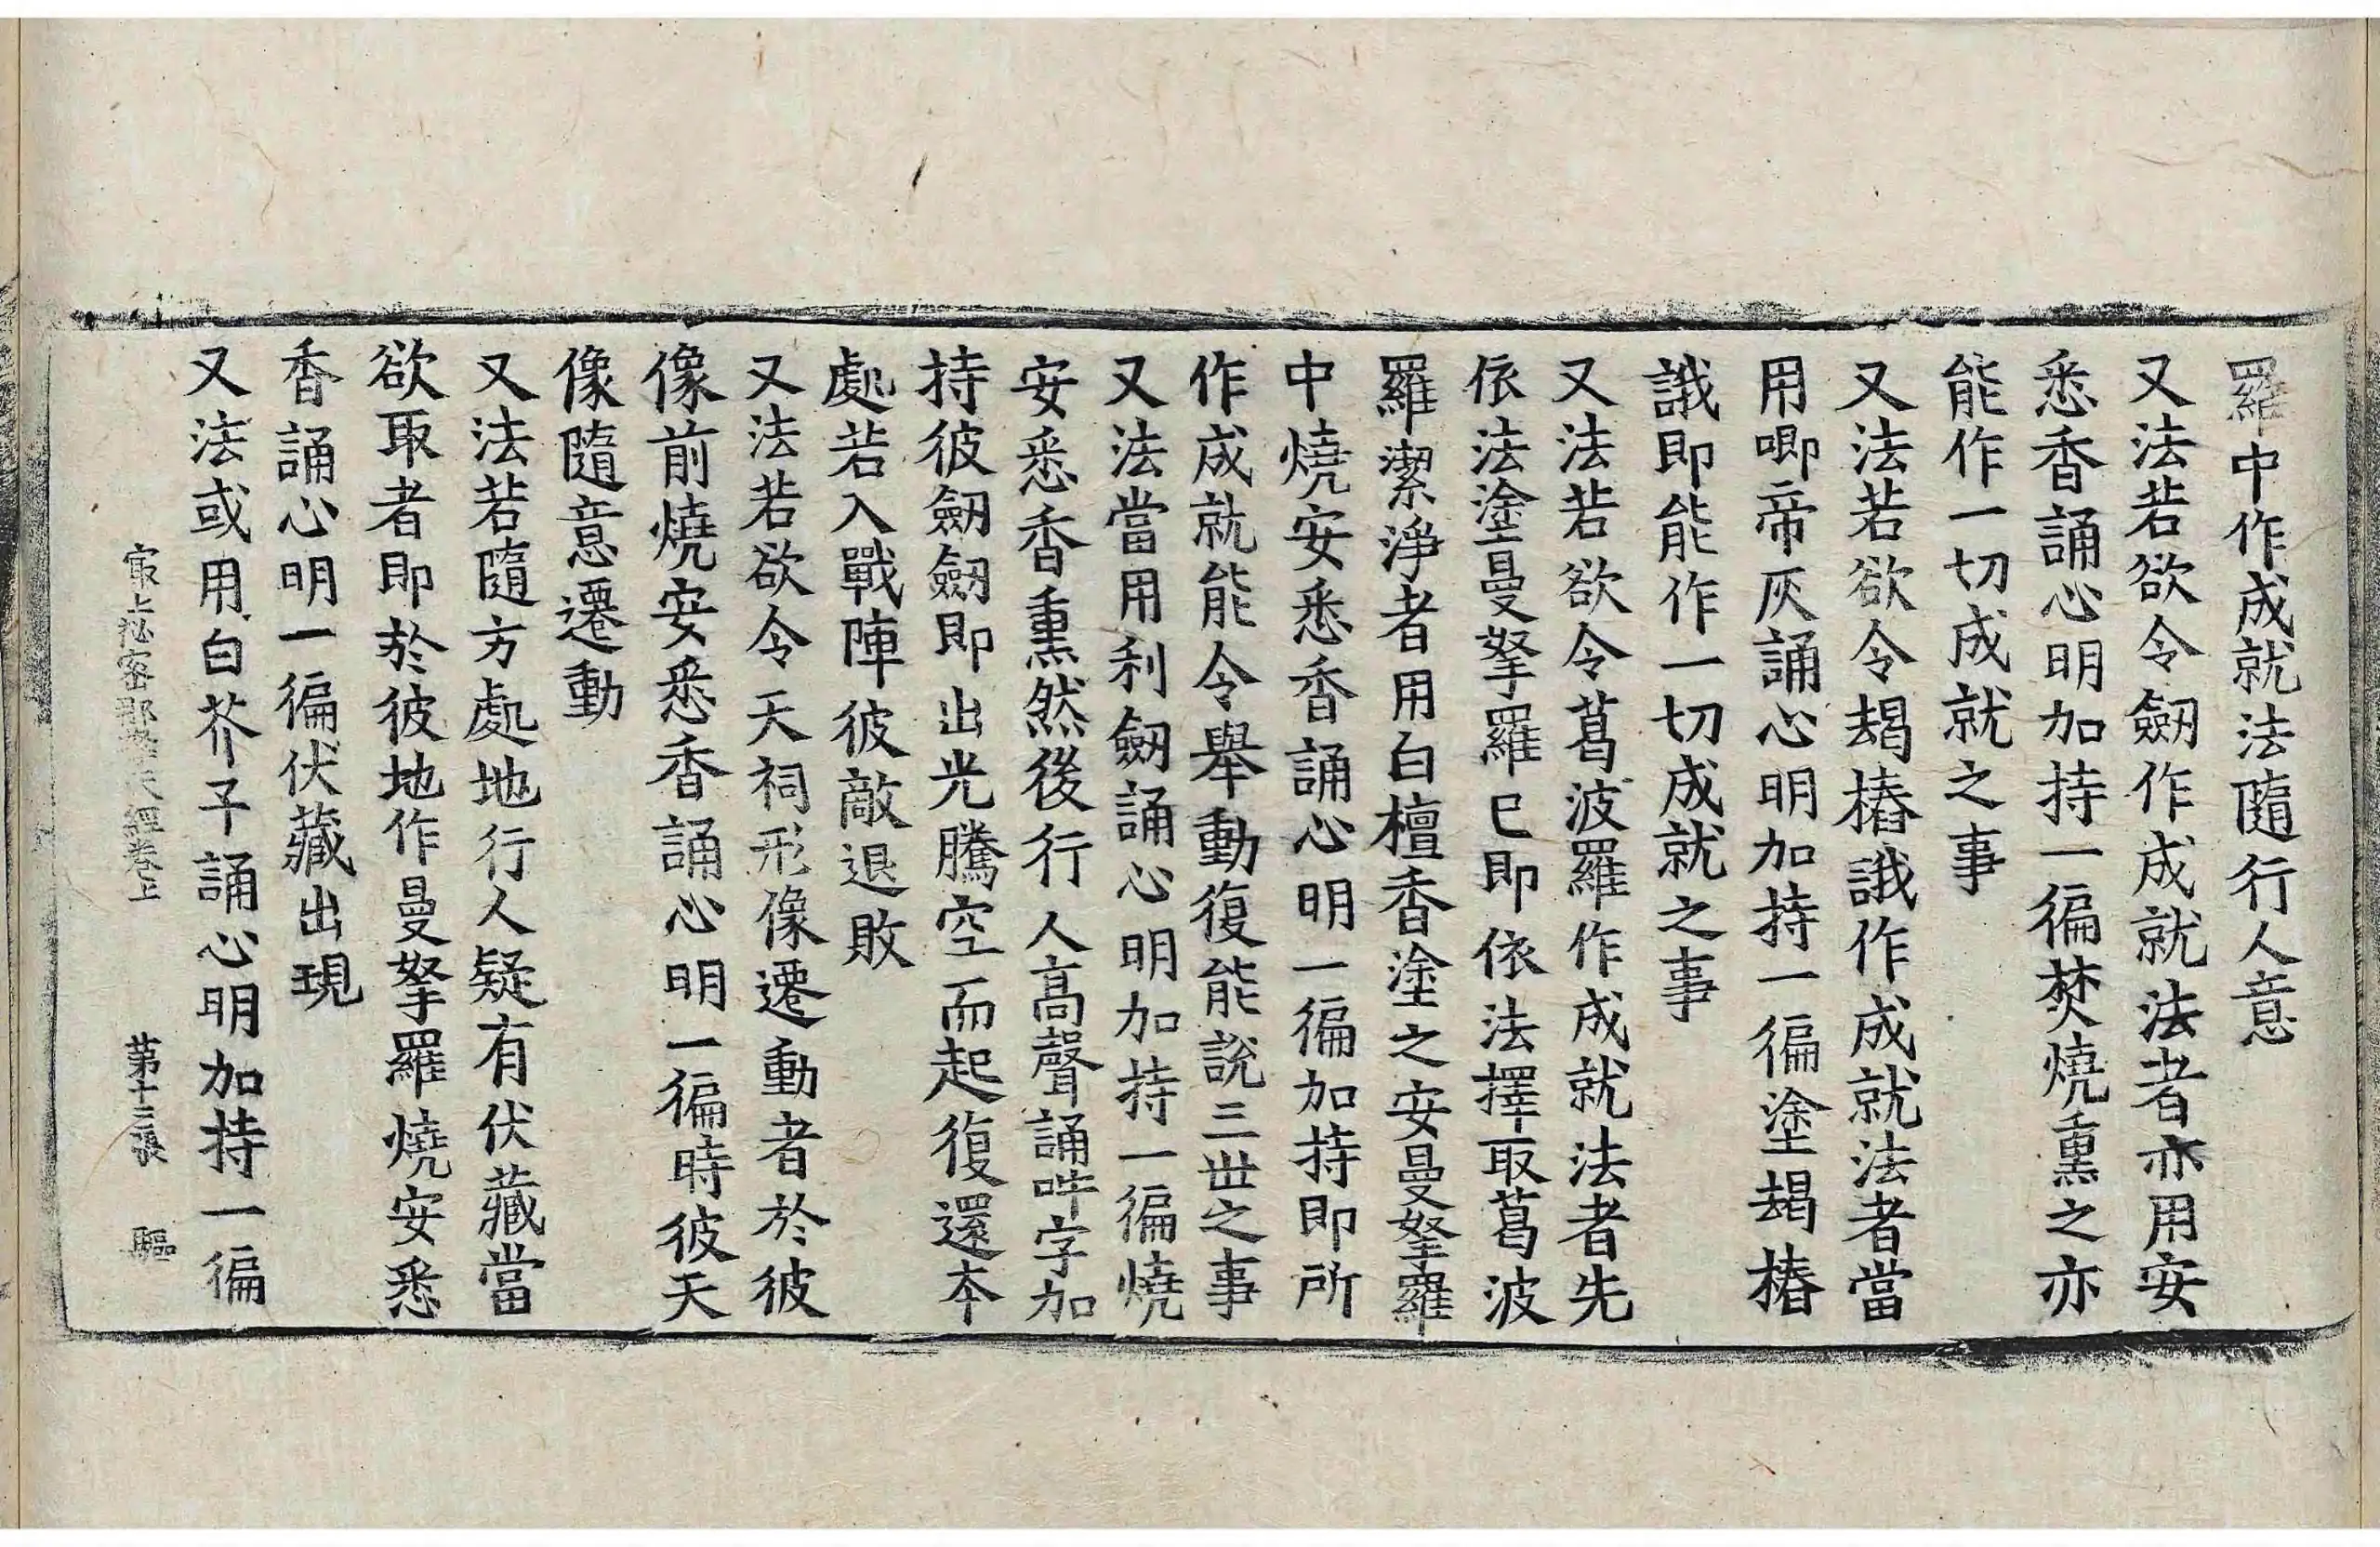 羅中作成就法隨行人意
又法若欲令劒作成就法者亦用安
悉香誦心明加持一徧焚燒熏之亦
能作一切成就之事
又法若欲令朅樁誐作成就法者當
用唧帝灰誦心明加持一徧塗朅樁
誐即能作一切成就之事
又法若欲令葛波羅作成就法者先
依法塗曼拏羅已即依法擇取葛波
羅潔淨者用白檀香塗之安曼拏羅
中燒安悉香誦心明一徧加持即所
作成就能令舉動復能說三世之事
又法當用利劒誦心明加持一徧燒
安悉香熏然後行人高聲誦吽字加
持彼劒劒即出光騰空而起復還本
處若入戰陣彼敵退敗
又法若欲令天祠形像遷動者於彼
像前燒安悉香誦心明一徧時彼天
像隨意遷動
又法若隨方處地行人疑有伏藏當
欲取者即於彼地作曼拏羅燒安悉
香誦心明一徧伏藏出現
又法或用白芥子誦心明加持一徧
冣上祕密那拏天經卷上 第十三張 驅